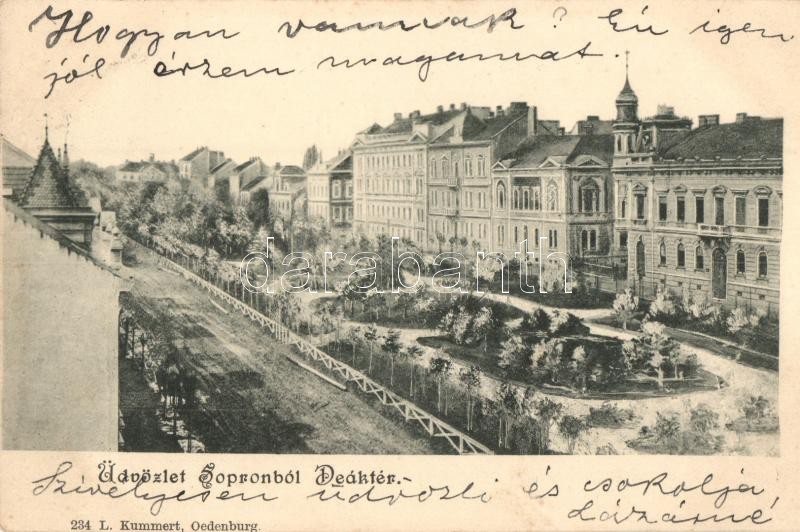 Hogyan vannak? Én igen
jól érzem magamat.
darabanth
Üdvözlet Sopronból Deáktér.-
Szivélyesen üdvözli és csokolja
Lázárné
234 L. Kummert, Oedenburg.